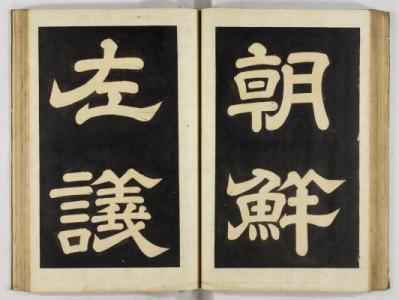 朝鮮
左議